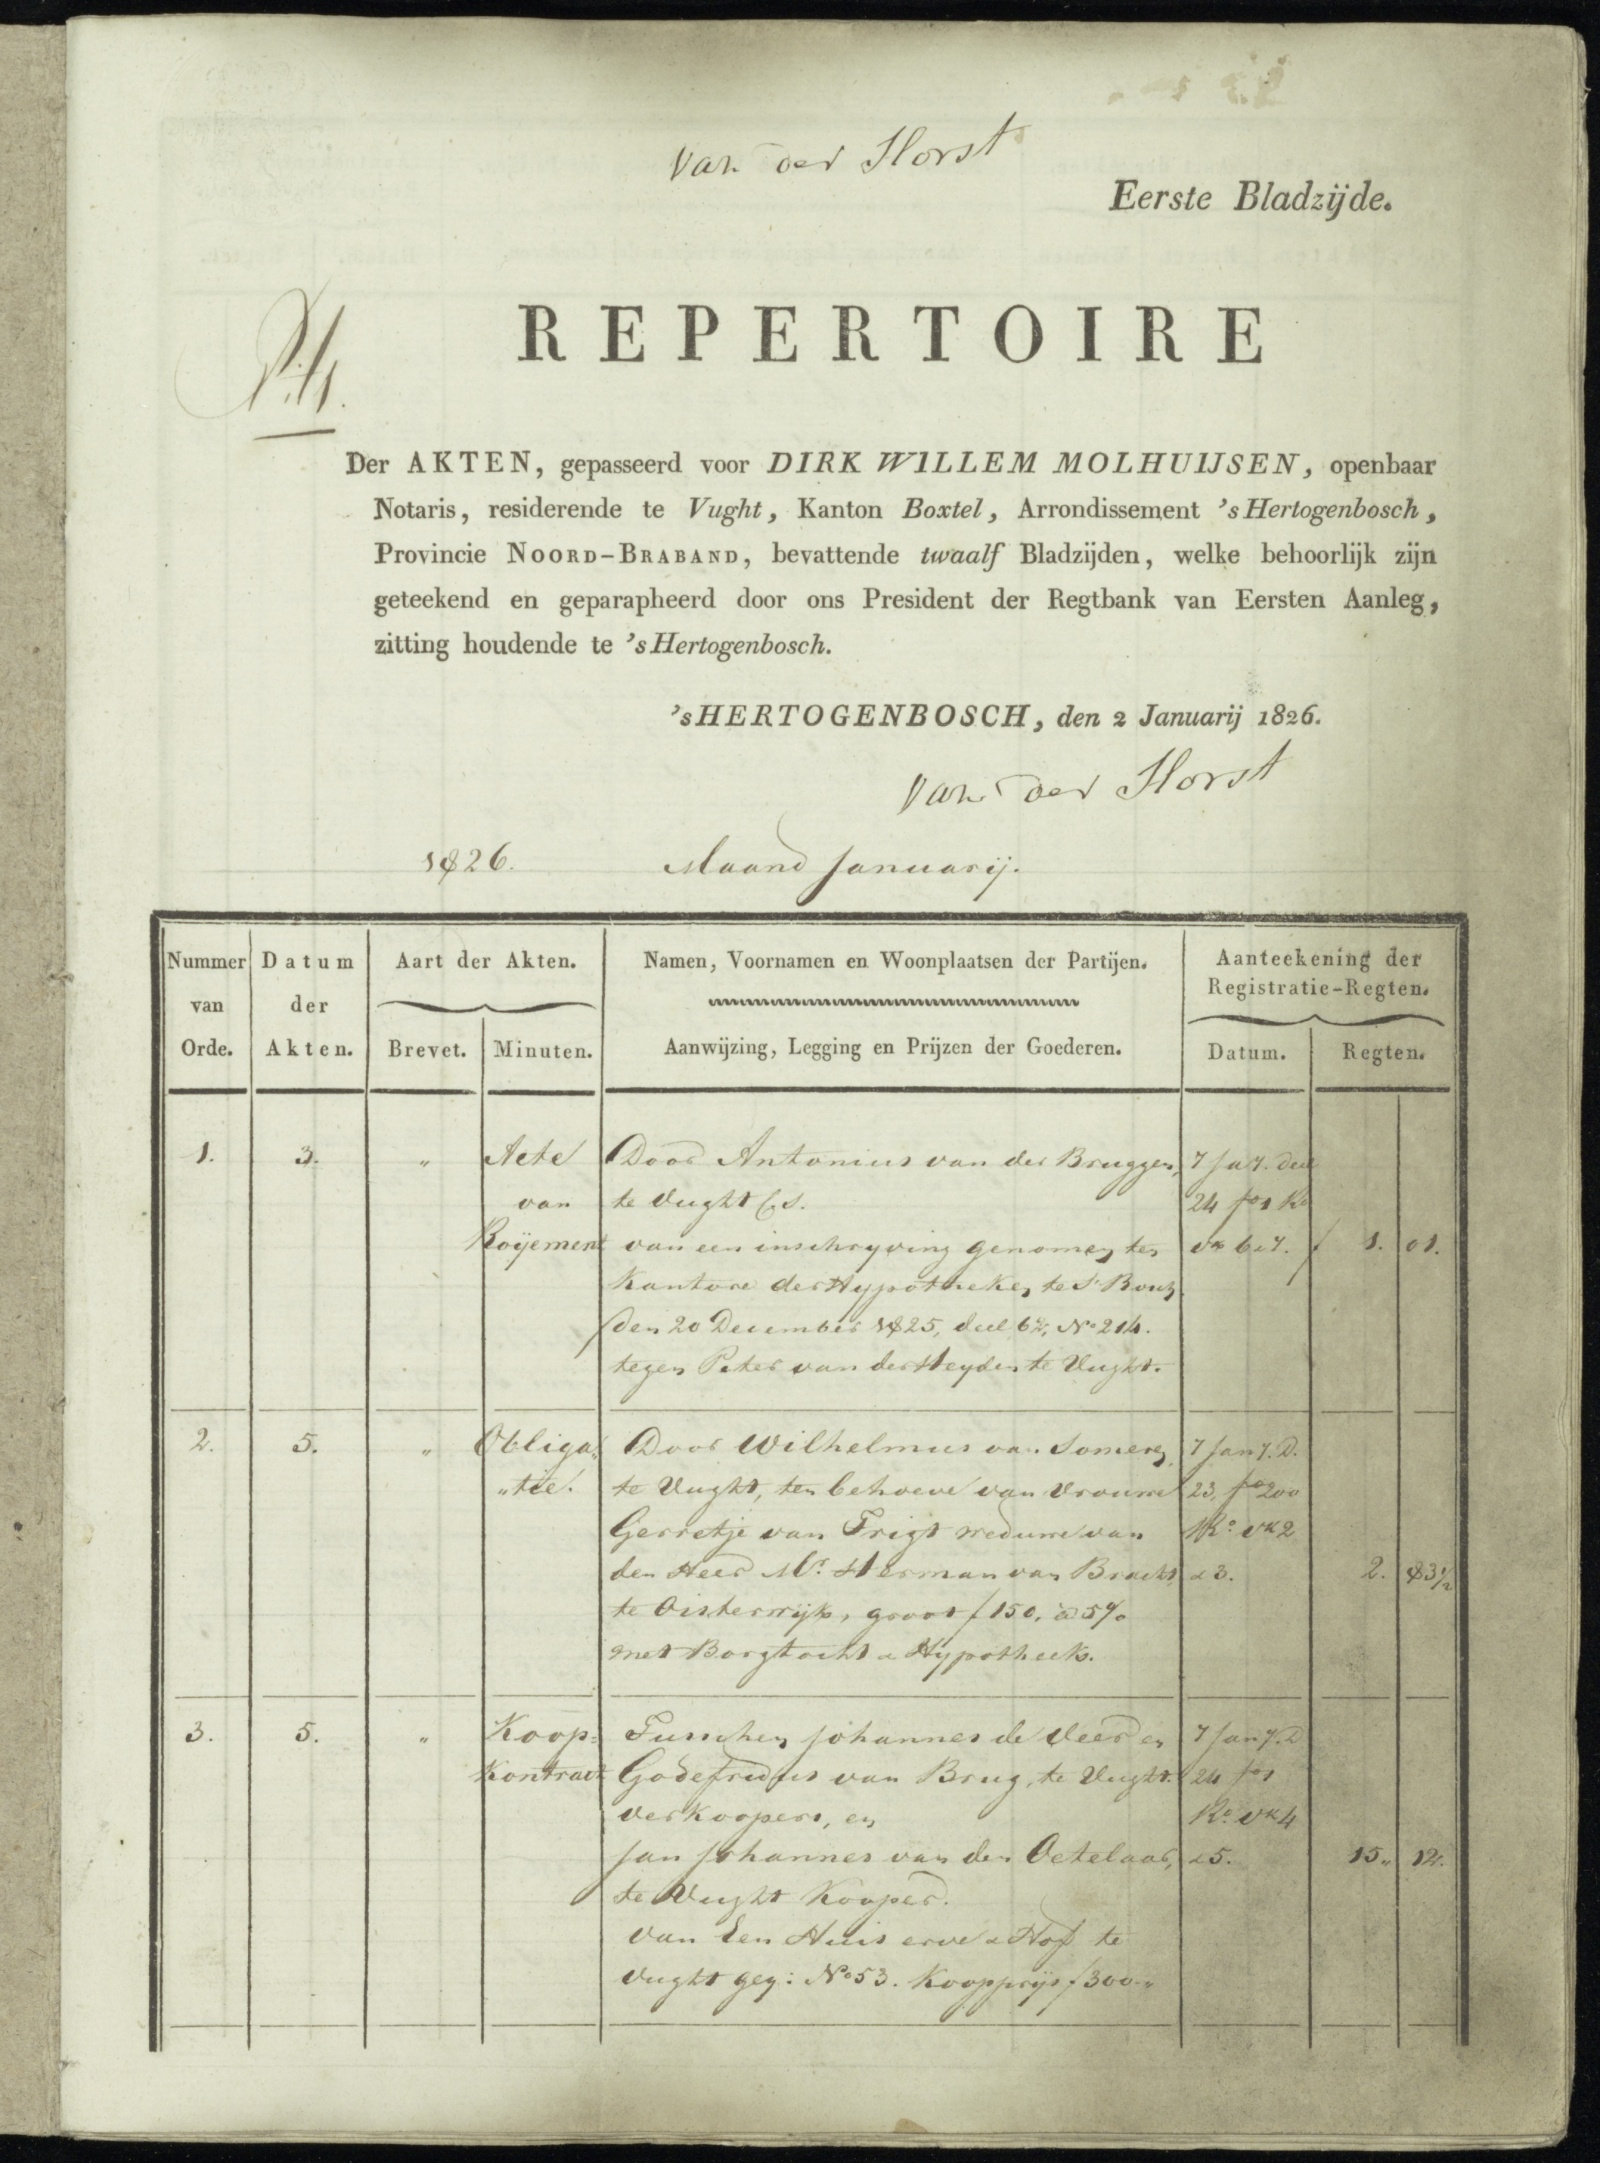 Van der Horst
Eerste Bladzijde.
REPERTOIRE
Der AKTEN, gepasseerd voor DIRK WILLEM MOLHUIJSEN, openbaar
Notaris, residerende te Vught, Kanton Boxtel, Arrondissement 's Hertogenbosch,
Provincie NOORD-BRABAND, bevattende twaalf Bladzijden, welke behoorlijk zijn
geteekend en geparapheerd door ons President der Regtbank van Eersten Aanleg,
zitting houdende te 's Hertogenbosch.
's HERTOGENBOSCH, den 2 Januarij 1826.
Van der Horst
1826. Maand Januarij.
Nummer van Orde.
Datum der Akten.
Aart der Akten.
Brevet. Minuten.
Namen, Voornamen en Woonplaatsen der Partijen.
Aanwijzing, Legging en Prijzen der Goederen.
Aanteekening der
Registratie-Regten.
Datum. Regten.
1. 3. " Acte Door Antonius van der Bruggen, 7 Ja 7. deel
van te Vught C.s. 24 fo 1 Ro
Roijement van een inschryving genomen ten vk 6 & 7. f 1. 01.
Kantore der Hypotheken te 's Bosch
den 20 December 1825, deel No 214.
tegen Peter van der Heyden te Vught.
2. 5. " Obliga„ Door Wilhelmus van Someren, 7 Jan 7. D.
„tie. te Vught, ten behoeve van Vrouwe 23, fo 200
Gerretje van Trigt weduwe van Ro vk 2
den Heer Mr. Herman van Bracht, & 3. 2. 83½
te Oisterwijk, groot f 150. à 5%
met Borgtocht & Hypotheek.
3. 5. " Koop= Tusschen Johannes de Veer en 7 Jan 7. D
Kontract Godefridus van Brug, te Vught. 24 fo 1
verkoopers, en Ro vk 4
Jan Johannes van den Oetelaar, & 5. 15„ 12.
te Vught Kooper.
van Een Huis erve & Hof te
Vught geq: No 53. Koopprijs f 300.„